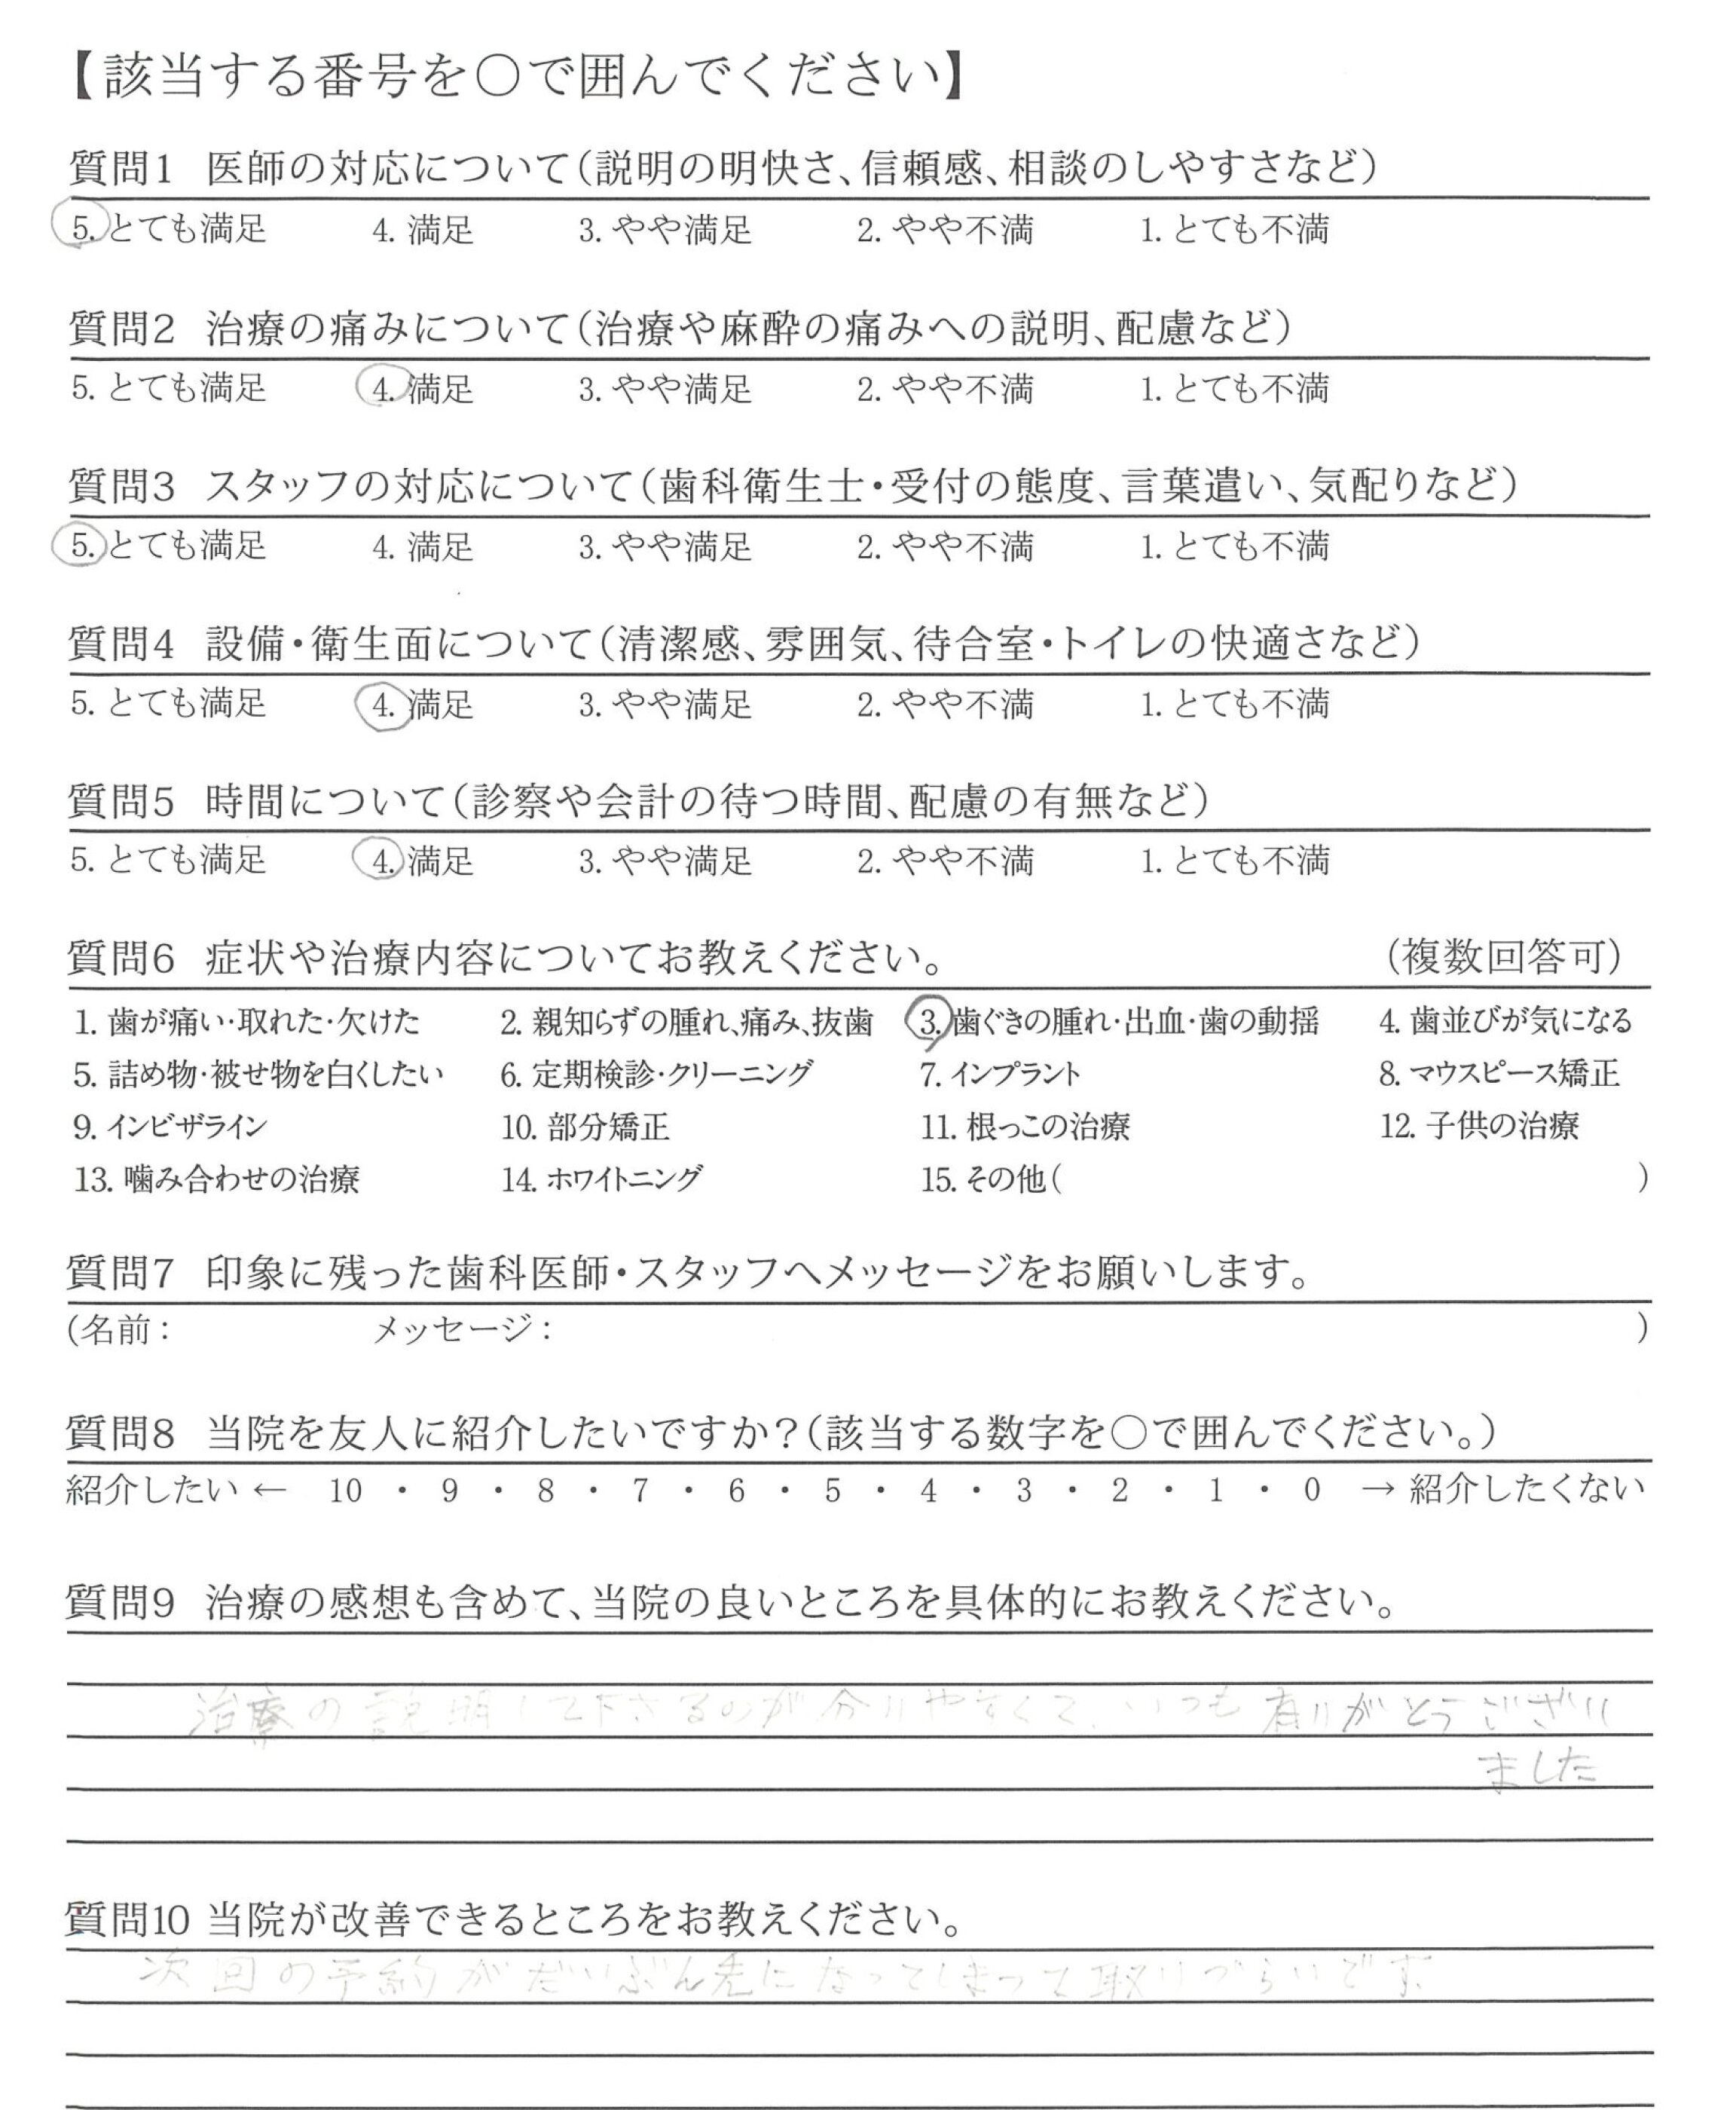 【該当する番号を○で囲んでください】
質問1 医師の対応について(説明の明快さ、信頼感、相談のしやすさなど)
5. とても満足 4. 満足 3. やや満足 2. やや不満 1. とても不満
質問2 治療の痛みについて(治療や麻酔の痛みへの説明、配慮など)
5. とても満足 4. 満足 3. やや満足 2. やや不満 1. とても不満
質問3 スタッフの対応について(歯科衛生士・受付の態度、言葉遣い、気配りなど)
5. とても満足 4. 満足 3. やや満足 2. やや不満 1. とても不満
質問4 設備・衛生面について(清潔感、雰囲気、待合室・トイレの快適さなど)
5. とても満足 4. 満足 3. やや満足 2. やや不満 1. とても不満
質問5 時間について(診察や会計の待つ時間、配慮の有無など)
5. とても満足 4. 満足 3. やや満足 2. やや不満 1. とても不満
質問6 症状や治療内容についてお教えください。 (複数回答可)
1. 歯が痛い・取れた・欠けた 2. 親知らずの腫れ、痛み、抜歯 3. 歯ぐきの腫れ・出血・歯の動揺 4. 歯並びが気になる
5. 詰め物・被せ物を白くしたい 6. 定期検診・クリーニング 7. インプラント 8. マウスピース矯正
9. インビザライン 10. 部分矯正 11. 根っこの治療 12. 子供の治療
13. 噛み合わせの治療 14. ホワイトニング 15. その他( )
質問7 印象に残った歯科医師・スタッフへメッセージをお願いします。
(名前: メッセージ: )
質問8 当院を友人に紹介したいですか?(該当する数字を○で囲んでください。)
紹介したい ← 10 ・ 9 ・ 8 ・ 7 ・ 6 ・ 5 ・ 4 ・ 3 ・ 2 ・ 1 ・ 0 → 紹介したくない
質問9 治療の感想も含めて、当院の良いところを具体的にお教えください。
治療の説明して下さるのが分りやすくて、いつも有りがとうござい
ました
質問10 当院が改善できるところをお教えください。
次回の予約がだいぶん先になってしまって取りづらいです